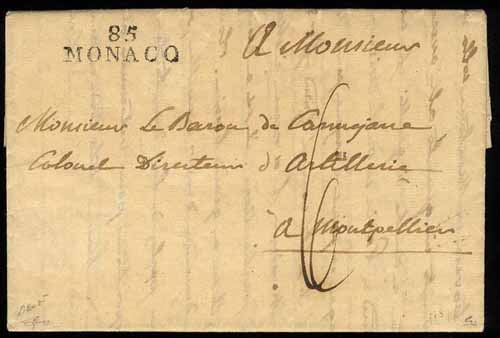 85
MONACO
A Monsieur
Monsieur Le Baron de
Colonel Directeur d'Artillerie
à Montpellier
6